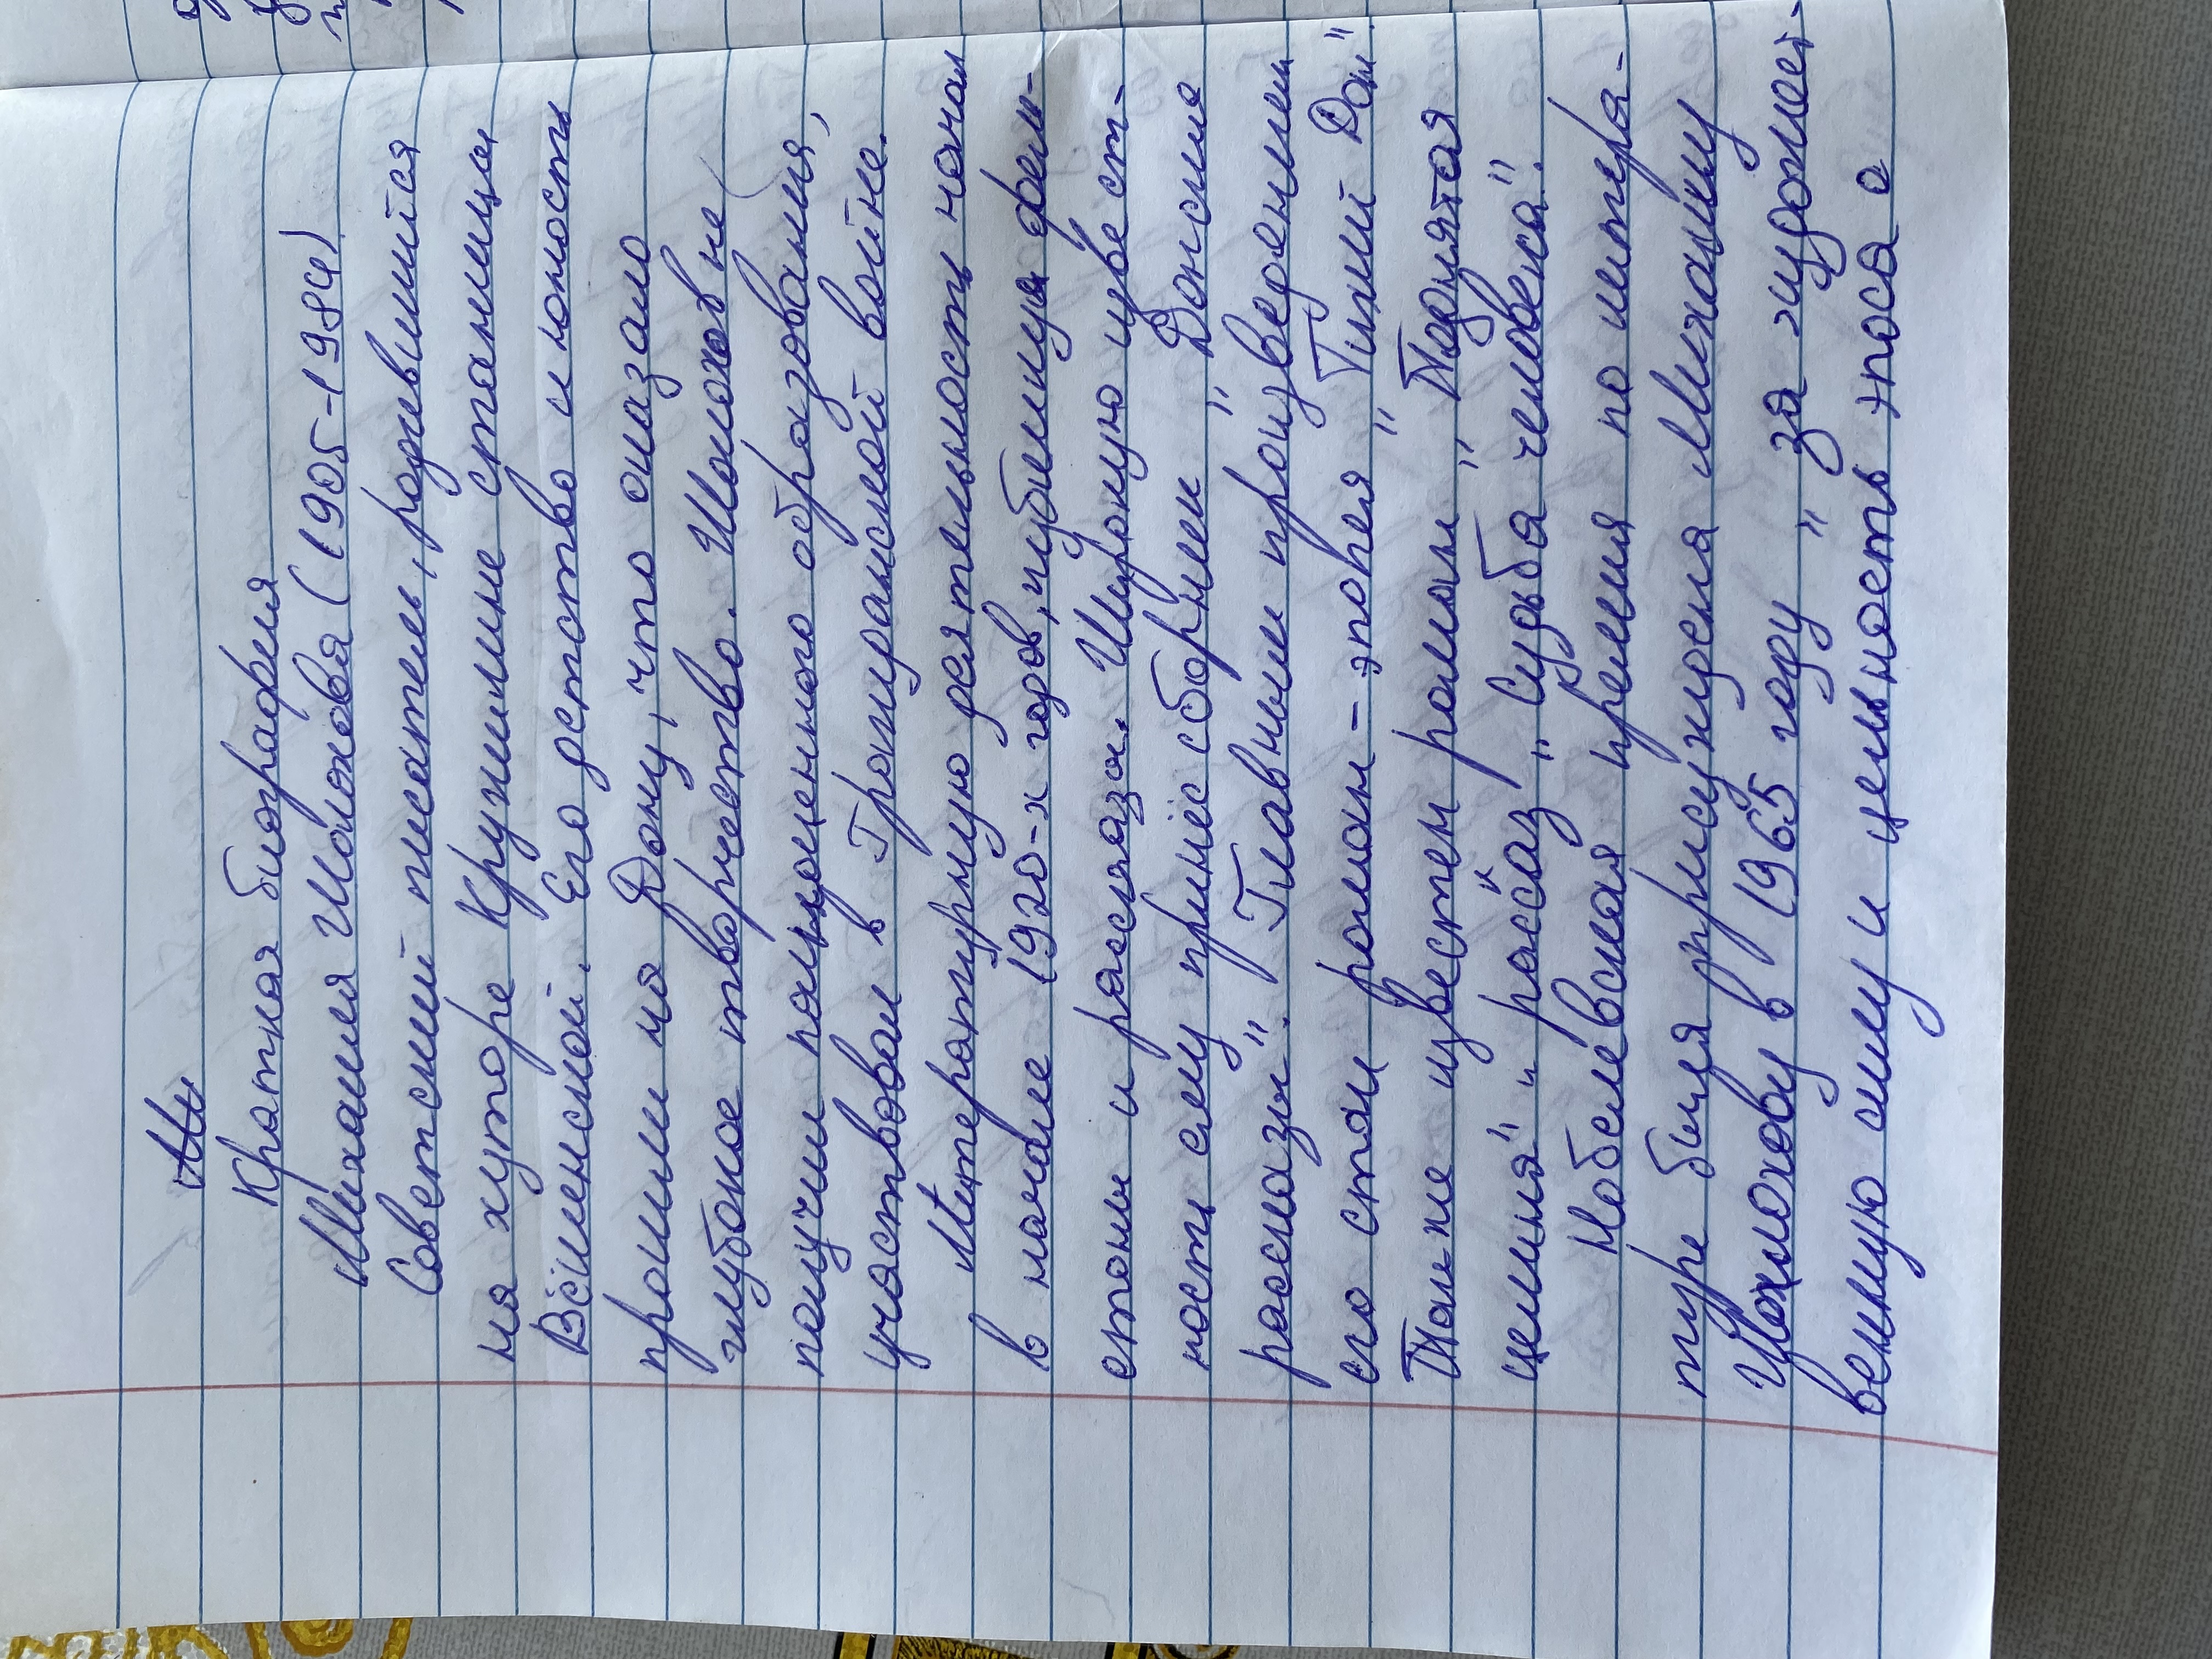 Краткая биография
Михаила Шолохова (1905-1984)
Советский писатель, родившийся
на хуторе Кружилине станицы
Вёшенской. Его детство и юность
прошли на Дону, что оказало
глубокое творчество. Шолохов не
получил полноценного образования,
участвовал в Гражданской войне.
Литературную деятельность начал
в начале 1920-х годов, публикуя фель-
етоны и рассказы. Широкую извест-
ность ему принёс сборник "Донские
рассказы". Главным произведением
его стал роман-эпопея "Тихий Дон".
Также известен роман "Поднятая
целина" и рассказ "Судьба человека".
Нобелевская премия по литера-
туре была присуждена Михаилу
Шолохову в 1965 году "за художест-
венную силу и цельность эпоса о